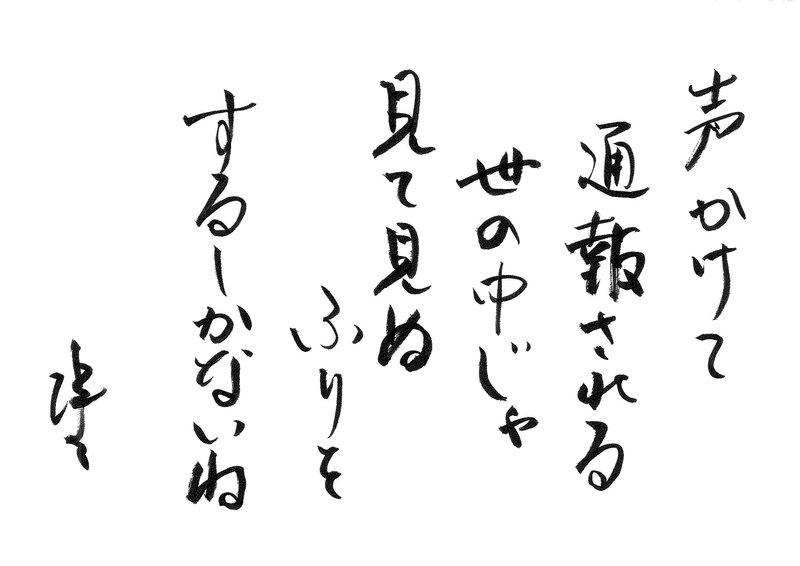 声かけて
通報される
世の中じゃ
見て見ぬ
ふりを
するしかないね